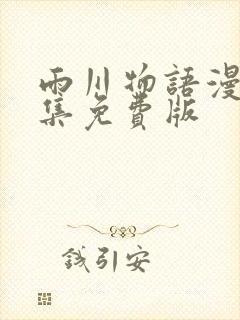 雨川物語漫
集免費版
錢引安